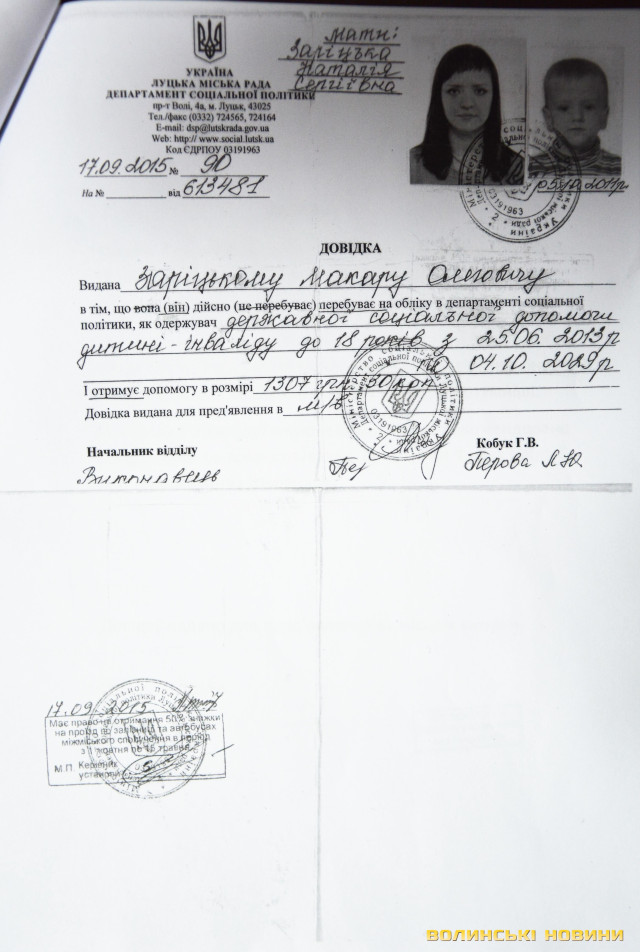 Мати:
Заріцька
Наталія
Сергіївна
УКРАЇНА
ЛУЦЬКА МІСЬКА РАДА
ДЕПАРТАМЕНТ СОЦІАЛЬНОЇ ПОЛІТИКИ
пр-т Волі, 4а, м. Луцьк, 43025
Тел./факс (0332) 724565, 724164
E-mail: dsp@lutskrada.gov.ua
Web: http:// www.social.lutsk.ua
Код ЄДРПОУ 03191963
17.09.2015 № 90
На № від 613481
05.10.2011р
ДОВІДКА
Видана Заріцькому Макару Олеговичу
в тім, що вона (він) дійсно (не перебуває) перебуває на обліку в департаменті соціальної
політики, як одержувач державної соціальної допомоги
дитині-інваліду до 18 років з 25.06.2013р
по 04.10.2029р
І отримує допомогу в розмірі 1307 грн 30 коп
Довідка видана для пред'явлення в м/в
Начальник відділу Кобук Г.В.
Виконавець Перова
17.09.2015
Має право на отримання 50% знижки
на проїзд по залізниці та автобусах
міжміського сполучення в період
з 1 жовтня по 15 травня
М.П. Керівник
установи
ВОЛИНСЬКІ НОВИНИ